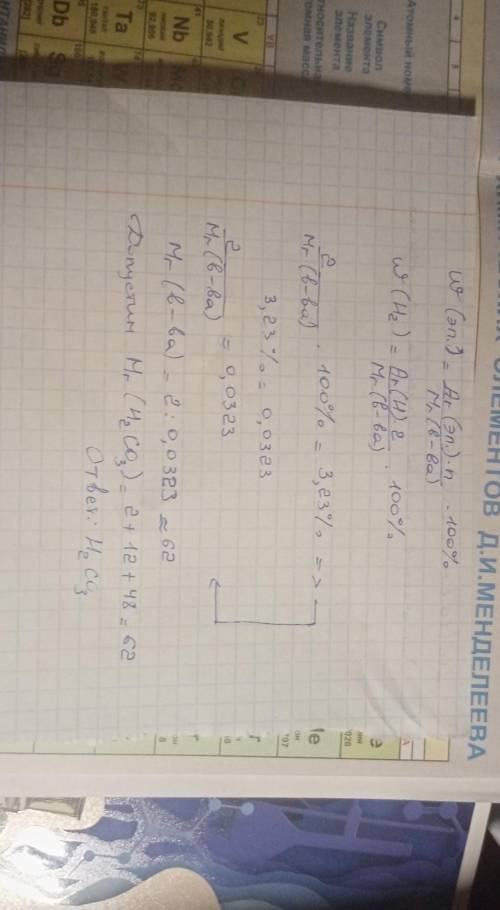 ЭЛЕМЕНТОВ Д.И.МЕНДЕЛЕЕВА
Атомный номер
Символ
элемента
Название
элемента
VB
V
Nb
Ta
Db
W (эл.) = Ar (эл.)·n / Mr (в-ва) · 100%
W (H₂) = Ar (H)·2 / Mr (в-ва) · 100%
2 / Mr (в-ва) · 100% = 3,23% =>
3,23% = 0,0323
2 / Mr (в-ва) = 0,0323
Mr (в-ва) = 2 : 0,0323 ≈ 62
Допустим Mr (H₂CO₃) = 2 + 12 + 48 = 62
Ответ: H₂CO₃